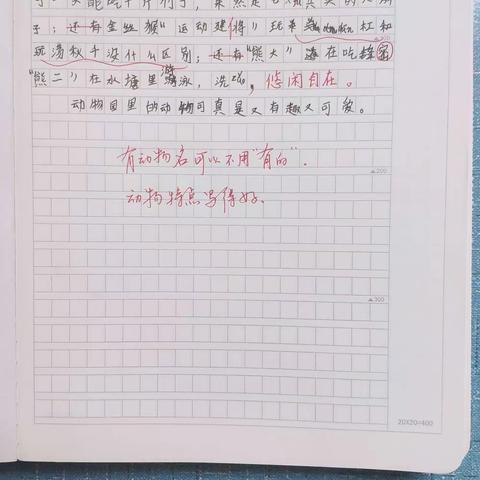 子；还有金丝猴"运动健将"玩单杠和
玩荡秋千没什么区别；还有"熊大"在吃蜂蜜
"熊二"在水塘里游泳，洗澡，悠闲自在。
动物园里的动物可真是又有趣又可爱。
有动物名可以不用"有的".
▲200
动物特点写得好.
▲300
20X20=400